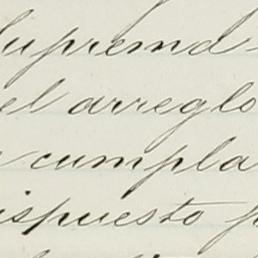 Suprema
el arreglo
cumpla
ispuesto p